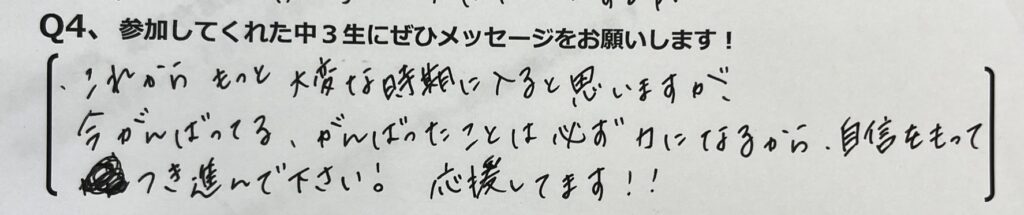 Q4、参加してくれた中3生にぜひメッセージをお願いします！
これから もっと 大変な時期に入ると思いますが、
今がんばってる、がんばったことは必ず力になるから、自信をもって
つき進んで下さい！ 応援してます！！